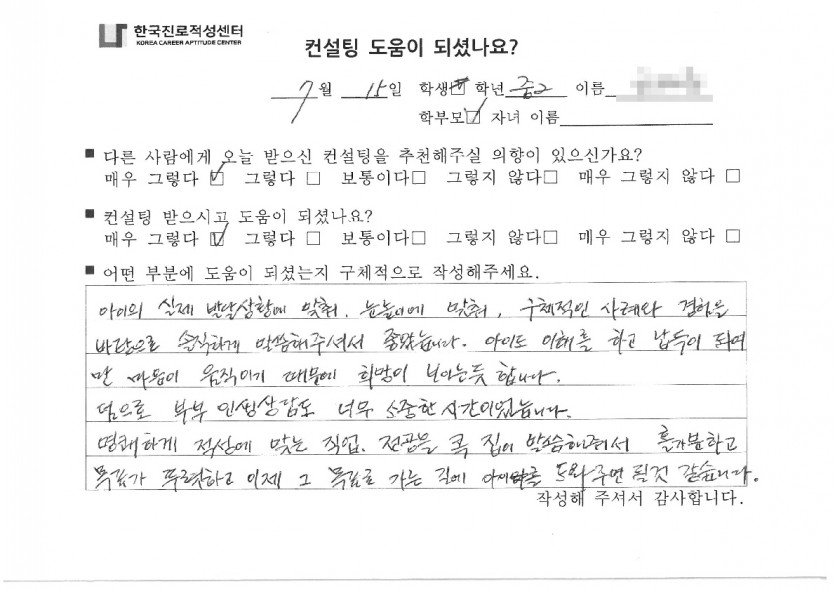 한국진로적성센터
KOREA CAREER APTITUDE CENTER
컨설팅 도움이 되셨나요?
7월 15일 학생☐ 학년 중2 이름
학부모☑ 자녀 이름
■ 다른 사람에게 오늘 받으신 컨설팅을 추천해주실 의향이 있으신가요?
매우 그렇다 ☑ 그렇다 ☐ 보통이다☐ 그렇지 않다☐ 매우 그렇지 않다 ☐
■ 컨설팅 받으시고 도움이 되셨나요?
매우 그렇다 ☑ 그렇다 ☐ 보통이다☐ 그렇지 않다☐ 매우 그렇지 않다 ☐
■ 어떤 부분에 도움이 되셨는지 구체적으로 작성해주세요.
아이의 실제 발달상황에 맞춰, 눈높이에 맞춰, 구체적인 사례와 경험을
바탕으로 솔직하게 말씀해주셔서 좋았습니다. 아이도 이해를 하고 납득이 되여
만 마음이 움직이기 때문에 희망이 보이는듯 합니다.
덤으로 부부 인생상담도 너무 소중한 시간이었습니다.
명쾌하게 적성에 맞는 직업, 전공을 콕 집어 말씀해주셔서 홀가분하고
목표가 뚜렷하고 이제 그 목표로 가는 길에 아이를 도와주면 될것 같습니다.
작성해 주셔서 감사합니다.